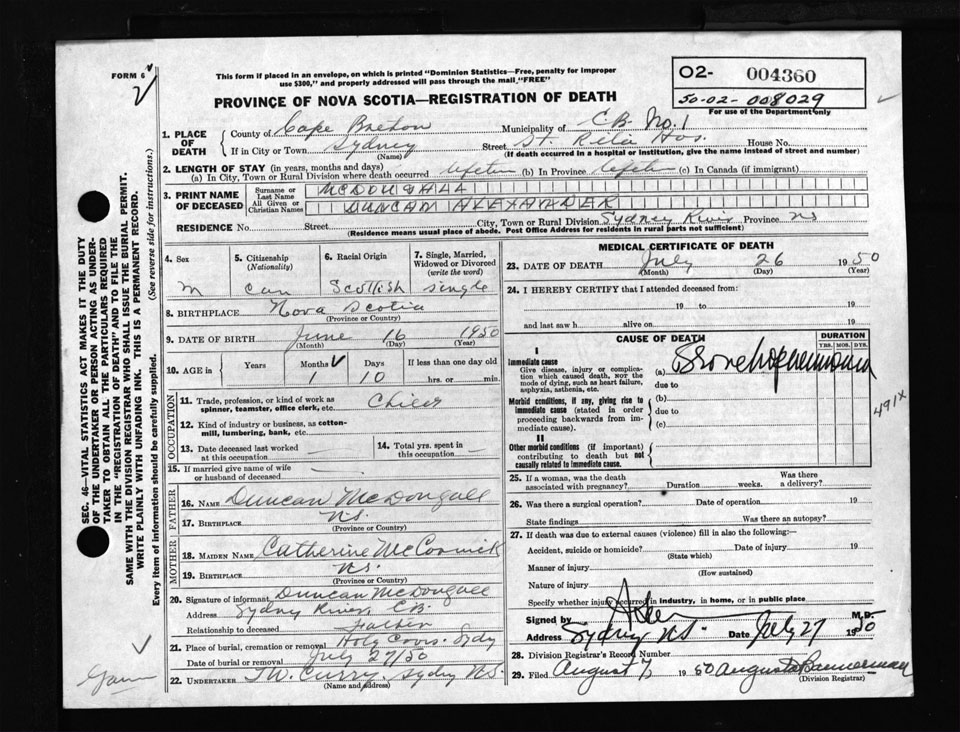 FORM 6
This form if placed in an envelope, on which is printed "Dominion Statistics—Free, penalty for improper
use $300," and properly addressed will pass through the mail "FREE"
02- 004360
50-02-008029
For use of the Department only
PROVINCE OF NOVA SCOTIA—REGISTRATION OF DEATH
1. PLACE OF DEATH
County of Cape Breton Municipality of C.B. No. 1
If in City or Town Sydney Street St. Rita Hos. House No.
(Name) (If death occurred in a hospital or institution, give the name instead of street and number)
2. LENGTH OF STAY (in years, months and days)
(a) In City, Town or Rural Division where death occurred (b) In Province (c) In Canada (if immigrant)
3. PRINT NAME OF DECEASED
Surname or Last Name MCDOUGALL
All Given or Christian Names DUNCAN ALEXANDER
RESIDENCE No. Street City, Town or Rural Division Sydney River Province NS
(Residence means usual place of abode. Post Office Address for residents in rural parts not sufficient)
4. Sex
m
5. Citizenship (Nationality)
Can
6. Racial Origin
Scottish
7. Single, Married, Widowed or Divorced (write the word)
Single
8. BIRTHPLACE Nova Scotia
(Province or Country)
9. DATE OF BIRTH June 16 1950
(Month) (Day) (Year)
10. AGE in
Years Months Days If less than one day old
1 10 hrs. or min.
OCCUPATION
11. Trade, profession, or kind of work as spinner, teamster, office clerk, etc. Child
12. Kind of industry or business, as cotton-mill, lumbering, bank, etc.
13. Date deceased last worked at this occupation
14. Total yrs. spent in this occupation
15. If married give name of wife or husband of deceased
FATHER
16. NAME Duncan McDougall
17. BIRTHPLACE N.S.
(Province or Country)
MOTHER
18. MAIDEN NAME Catherine McCormick
19. BIRTHPLACE N.S.
(Province or Country)
20. Signature of informant Duncan McDougall
Address Sydney River, C.B.
Relationship to deceased Father
21. Place of burial, cremation or removal Holy Cross. Sydy
Date of burial or removal July 27/50
22. UNDERTAKER T.W. Curry, Sydney N.S.
(Name and address)
MEDICAL CERTIFICATE OF DEATH
23. DATE OF DEATH July 26 1950
(Month) (Day) (Year)
24. I HEREBY CERTIFY that I attended deceased from:
19 to 19
and last saw h alive on 19
CAUSE OF DEATH
DURATION
YRS. MOS. DYS.
I
Immediate cause
Give disease, injury or complication which caused death, nor the mode of dying, such as heart failure, asphyxia, asthenia, etc.
(a) Bronchopneumonia
due to
Morbid conditions, if any, giving rise to immediate cause (stated in order proceeding backwards from immediate cause).
(b)
due to
(c)
491X
II
Other morbid conditions (if important) contributing to death but not causally related to immediate cause.
25. If a woman, was the death associated with pregnancy? Duration weeks. Was there a delivery?
26. Was there a surgical operation? Date of operation 19
State findings Was there an autopsy?
27. If death was due to external causes (violence) fill in also the following:—
Accident, suicide or homicide? Date of injury 19
(State which)
Manner of injury
(How sustained)
Nature of injury
Specify whether injury occurred in industry, in home, or in public place
Signed by M.D.
Address Sydney N.S. Date July 27 1950
28. Division Registrar's Record Number
29. Filed August 7, 1950 Augusta Bannerman
(Division Registrar)
SEC. 46—VITAL STATISTICS ACT MAKES IT THE DUTY
OF THE UNDERTAKER OR PERSON ACTING AS UNDER-
TAKER TO OBTAIN ALL THE PARTICULARS REQUIRED
IN THE "REGISTRATION OF DEATH" AND TO FILE THE
SAME WITH THE DIVISION REGISTRAR WHO SHALL ISSUE THE BURIAL PERMIT.
WRITE PLAINLY WITH UNFADING INK. THIS IS A PERMANENT RECORD.
Every item of information should be carefully supplied. (See reverse side for instructions.)